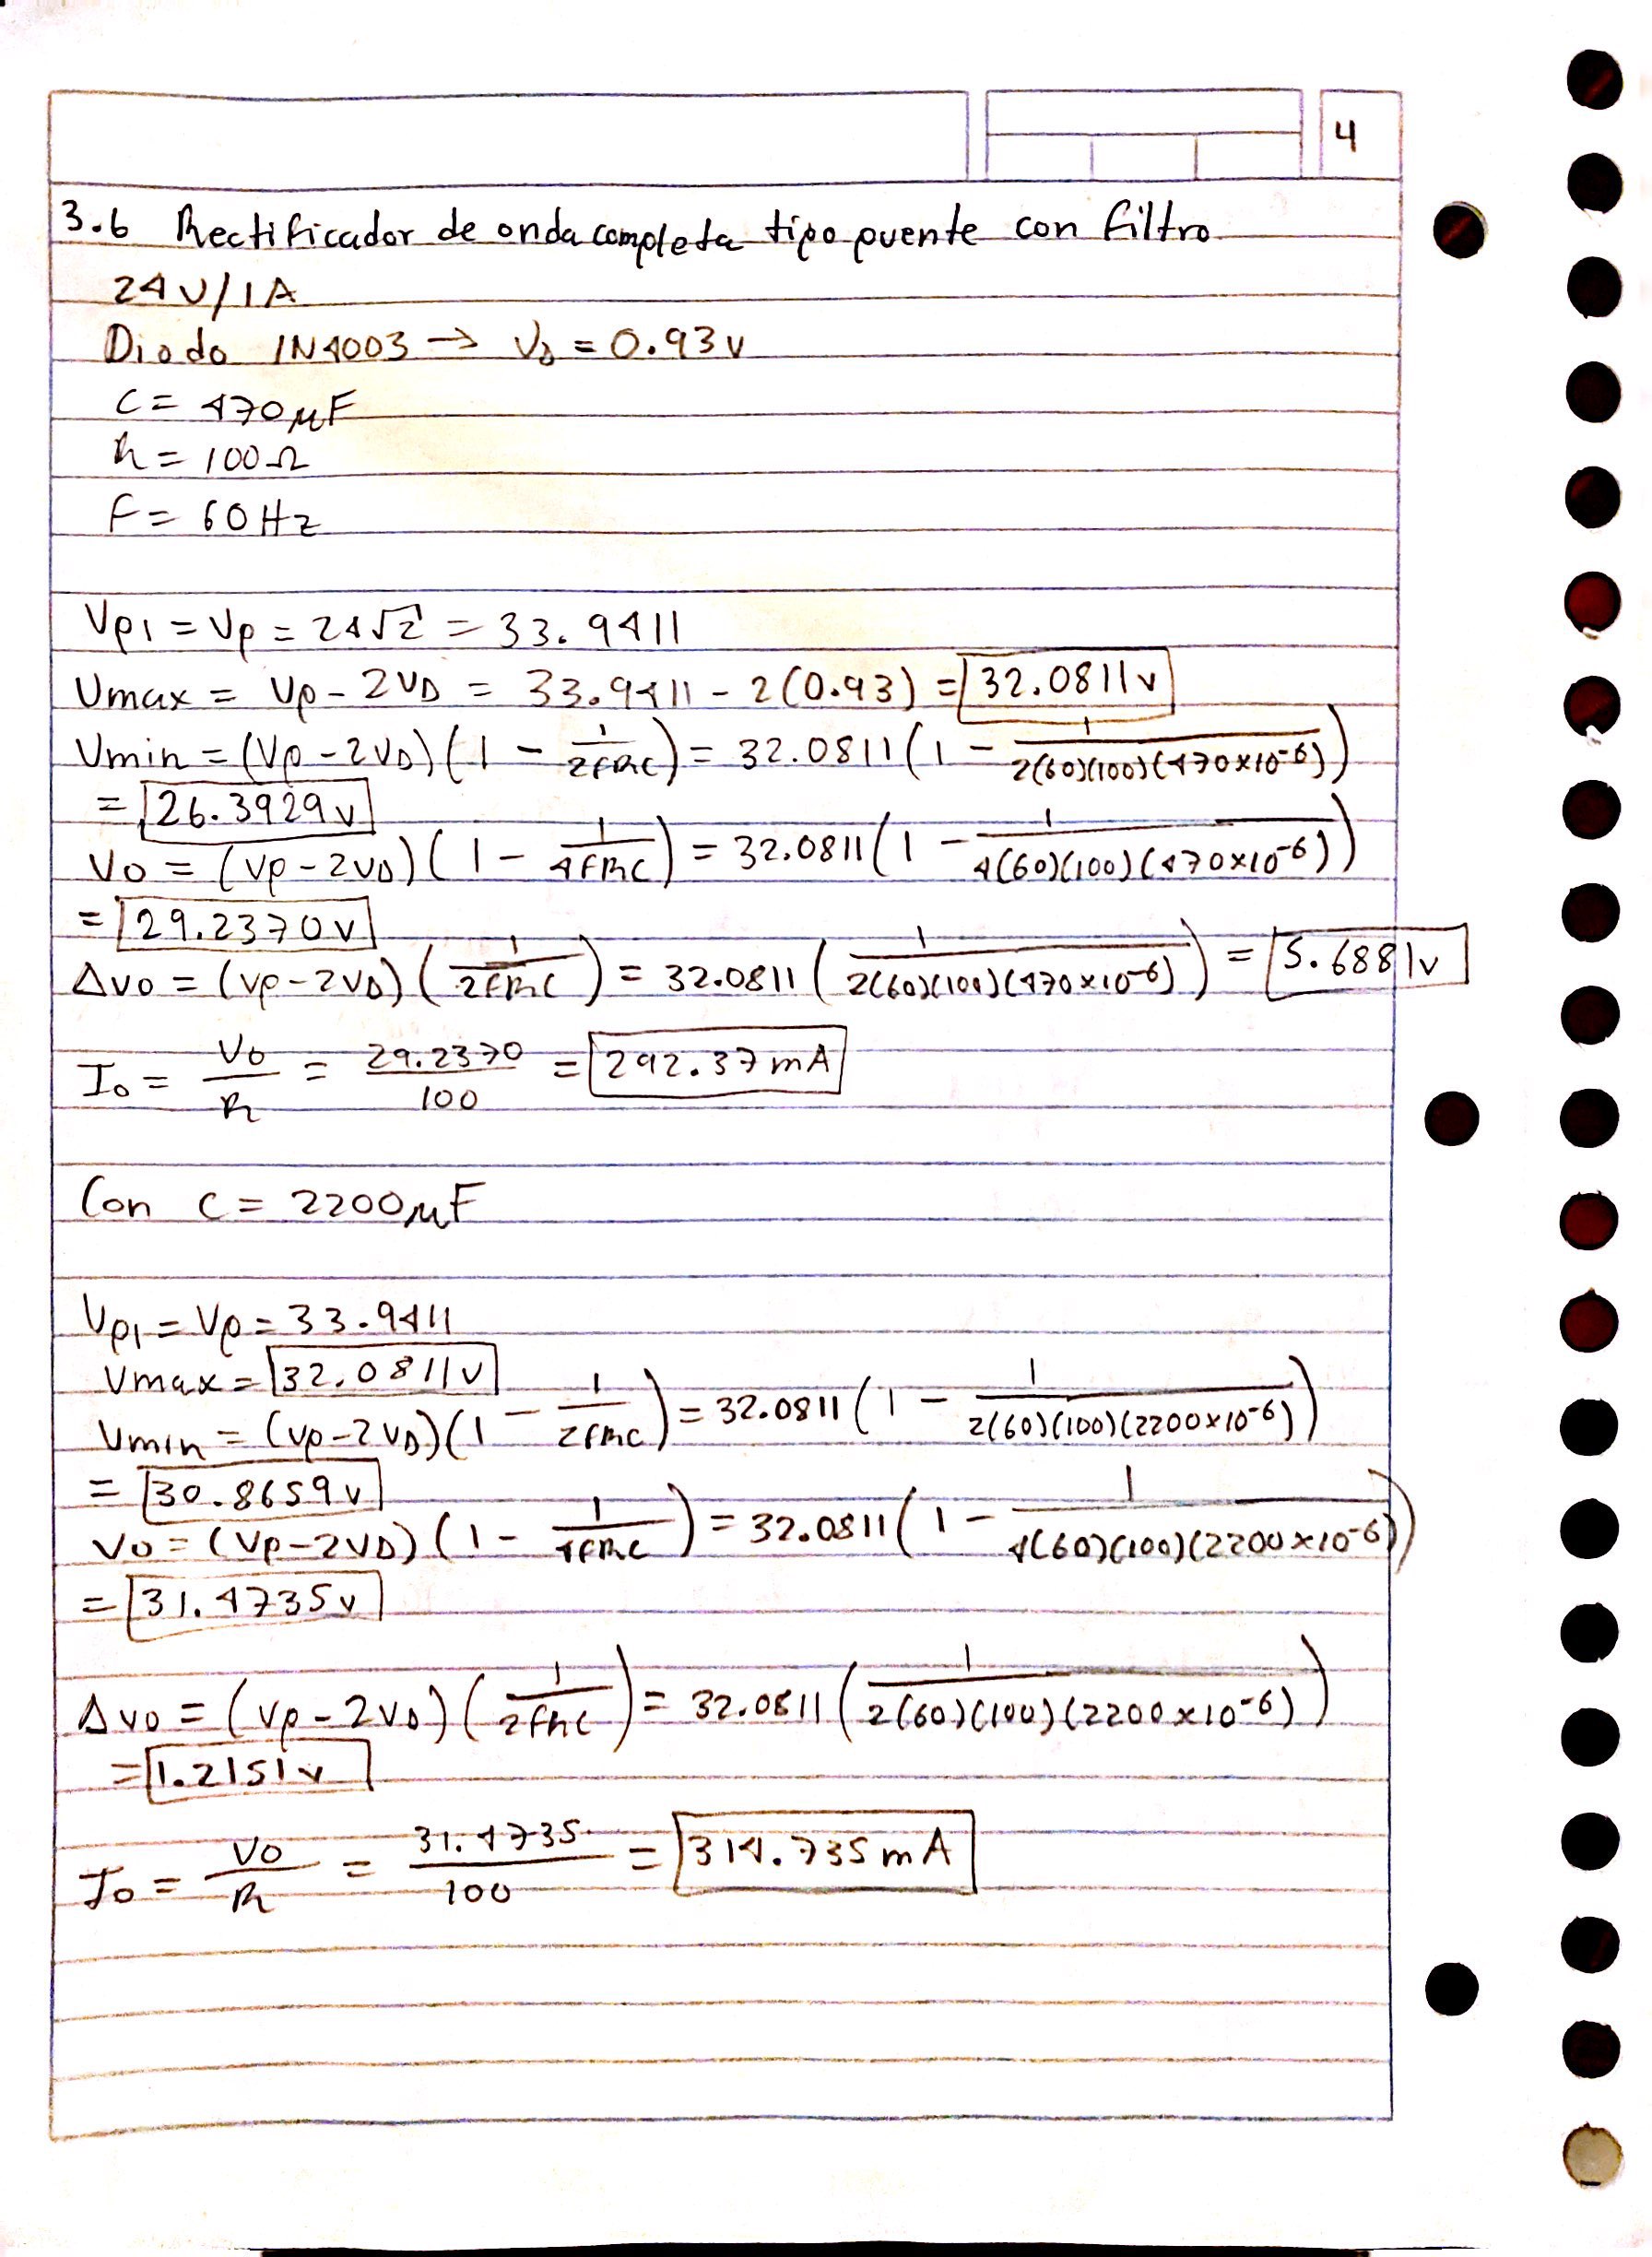 4
3.6 Rectificador de onda completa tipo puente con filtro
24V/1A
Diodo 1N4003 → VD = 0.93v
C = 470μF
R = 100Ω
F = 60Hz
Vp1 = Vp = 24√2 = 33.9411
Vmax = Vp - 2VD = 33.9411 - 2(0.93) = 32.0811v
Vmin = (Vp - 2VD)(1 - 1/2fRC) = 32.0811(1 - 1/2(60)(100)(470x10^-6))
= 26.3929v
Vo = (Vp - 2VD)(1 - 1/4fRC) = 32.0811(1 - 1/4(60)(100)(470x10^-6))
= 29.2370v
ΔVo = (Vp - 2VD)(1/2fRC) = 32.0811(1/2(60)(100)(470x10^-6)) = 5.6881v
Io = Vo/R = 29.2370/100 = 292.37mA
Con C = 2200μF
Vp1 = Vp = 33.9411
Vmax = 32.0811v
Vmin = (Vp - 2VD)(1 - 1/2fRC) = 32.0811(1 - 1/2(60)(100)(2200x10^-6))
= 30.8659v
Vo = (Vp - 2VD)(1 - 1/4fRC) = 32.0811(1 - 1/4(60)(100)(2200x10^-6))
= 31.4735v
ΔVo = (Vp - 2VD)(1/2fRC) = 32.0811(1/2(60)(100)(2200x10^-6))
= 1.2151v
Io = Vo/R = 31.4735/100 = 314.735mA